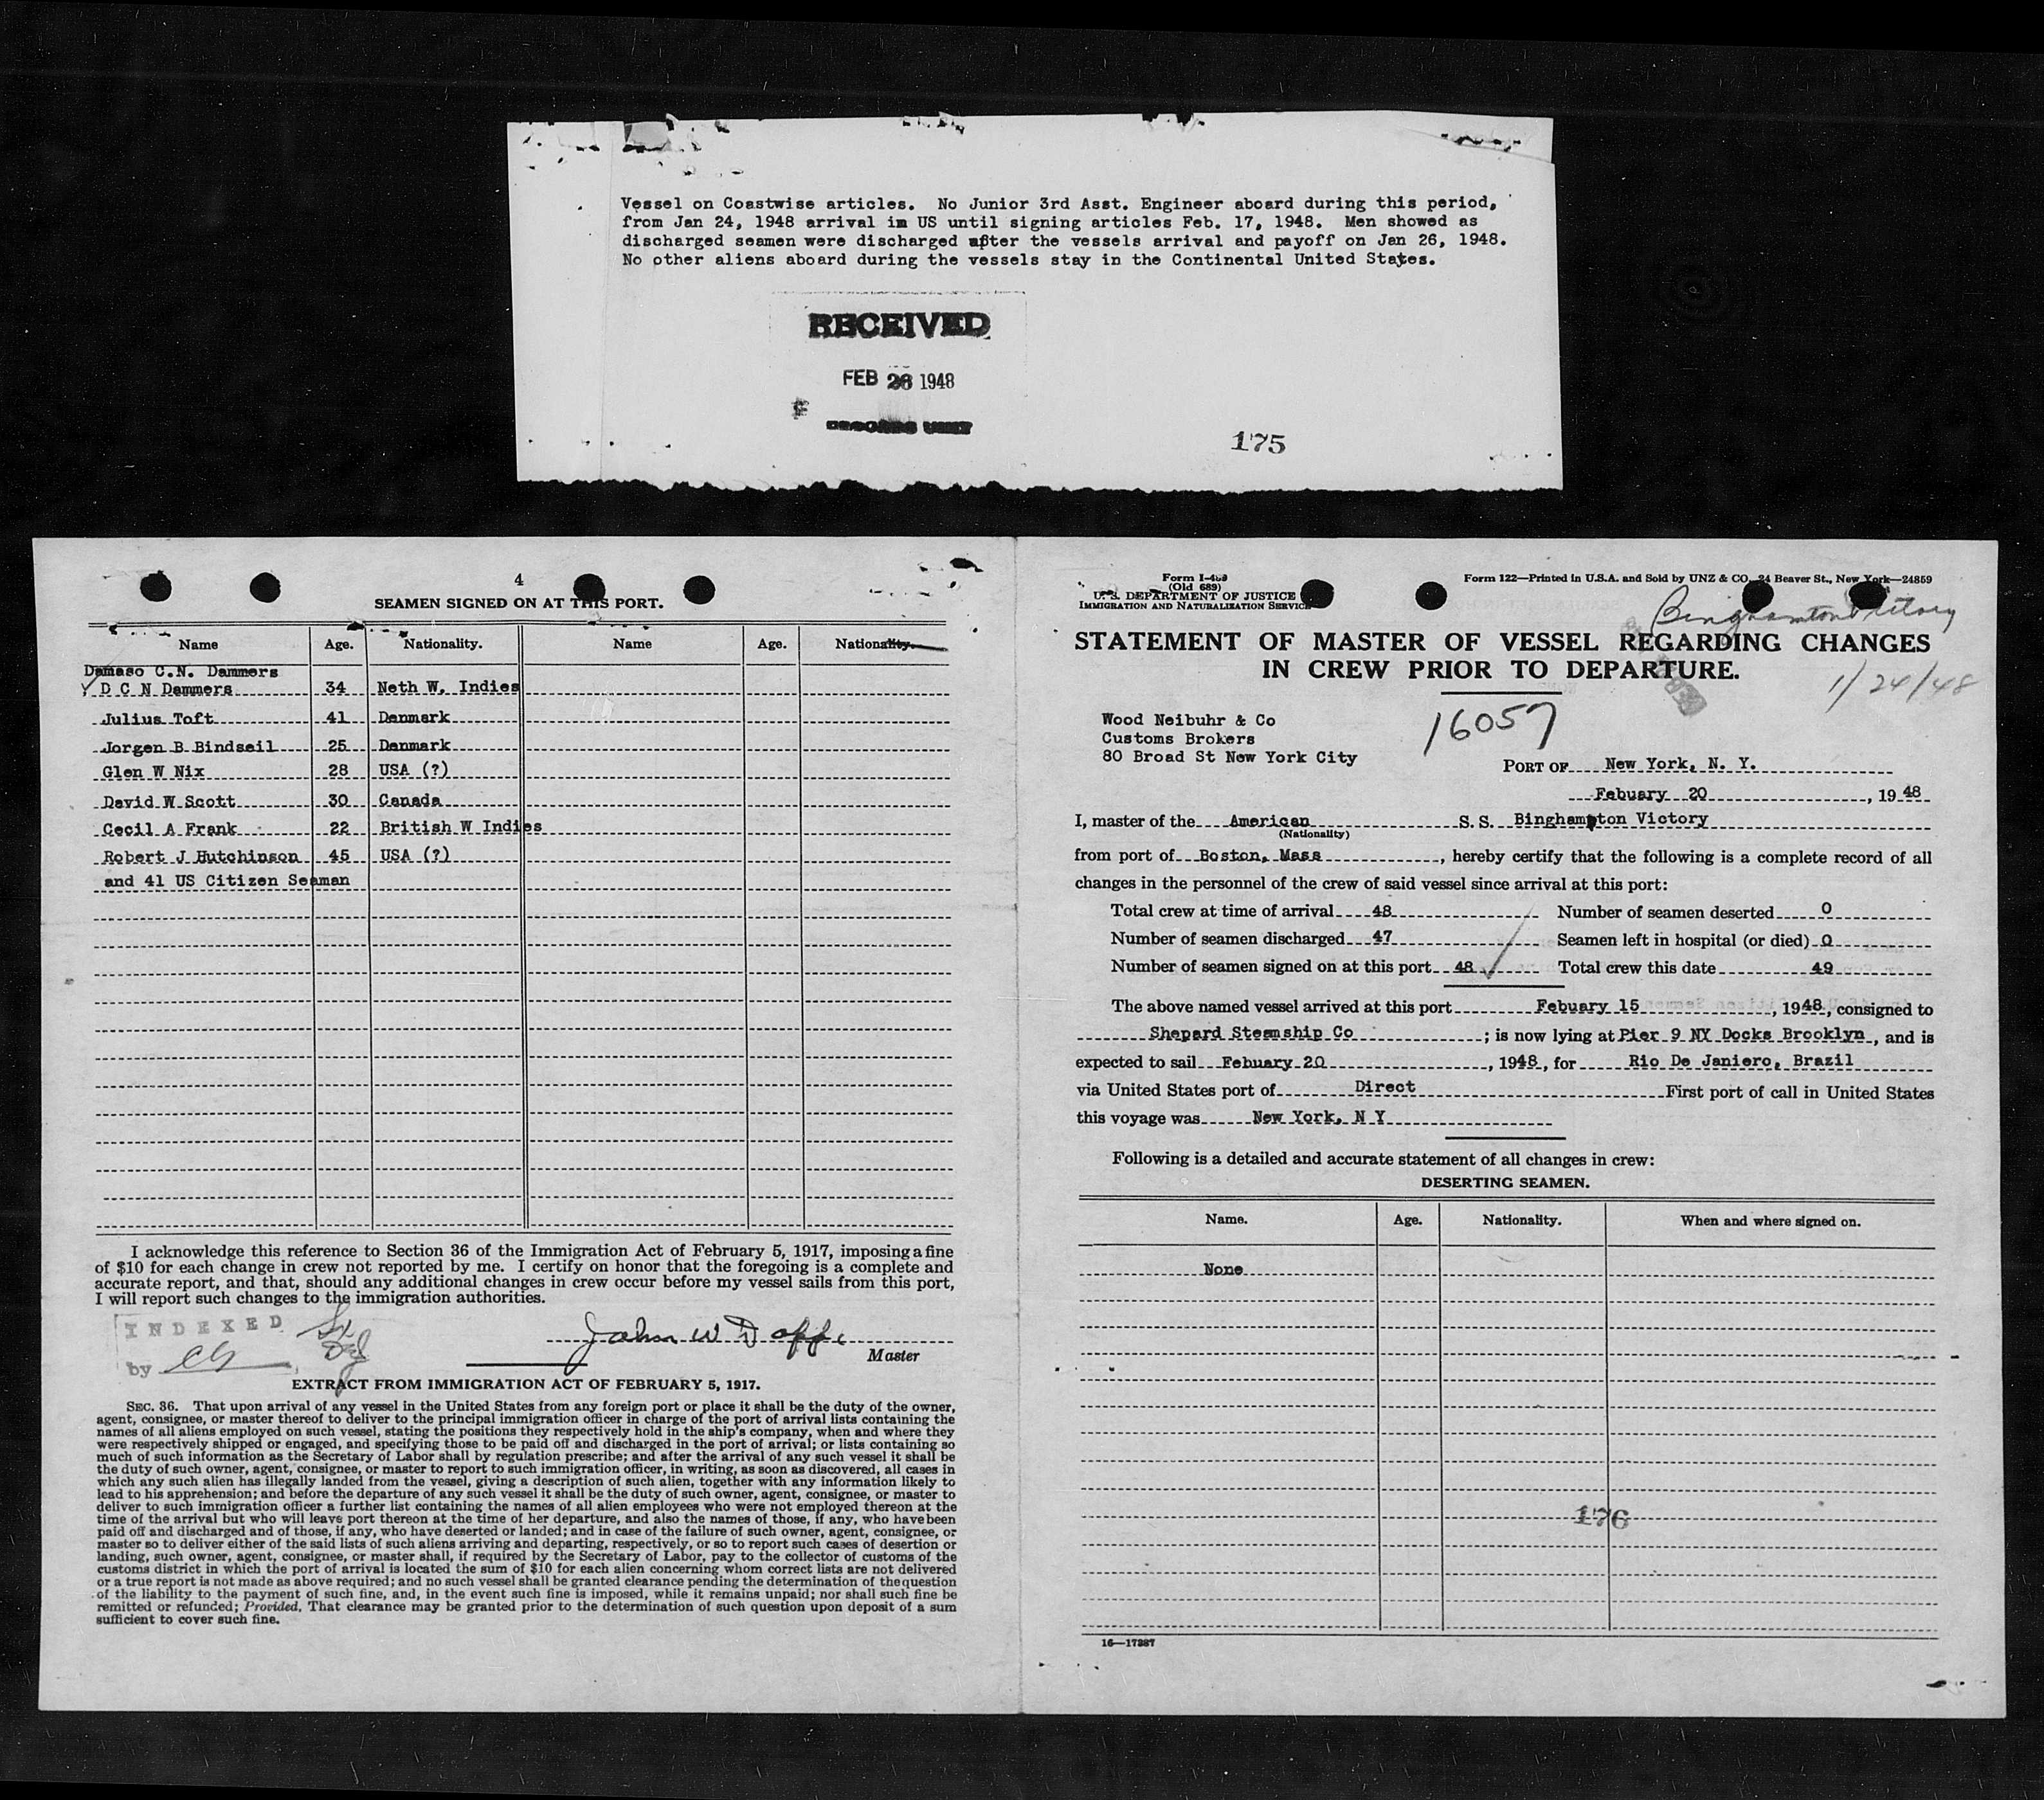 Vessel on Coastwise articles. No Junior 3rd Asst. Engineer aboard during this period,
from Jan 24, 1948 arrival in US until signing articles Feb. 17, 1948. Men showed as
discharged seamen were discharged after the vessels arrival and payoff on Jan 26, 1948.
No other aliens aboard during the vessels stay in the Continental United States.
RECEIVED
FEB 26 1948
RECORDS UNIT
175
4
SEAMEN SIGNED ON AT THIS PORT.
Name Age. Nationality. Name Age. Nationality.
Damaso C.N. Dammers
D C N Dammers 34 Neth W. Indies
Julius Toft 41 Denmark
Jorgen B Bindseil 25 Denmark
Glen W Nix 28 USA (?)
David W Scott 30 Canada
Cecil A Frank 22 British W Indies
Robert J Hutchinson 45 USA (?)
and 41 US Citizen Seaman
I acknowledge this reference to Section 36 of the Immigration Act of February 5, 1917, imposing a fine
of $10 for each change in crew not reported by me. I certify on honor that the foregoing is a complete and
accurate report, and that, should any additional changes in crew occur before my vessel sails from this port,
I will report such changes to the immigration authorities.
INDEXED
by
John W
Master
EXTRACT FROM IMMIGRATION ACT OF FEBRUARY 5, 1917.
SEC. 36. That upon arrival of any vessel in the United States from any foreign port or place it shall be the duty of the owner,
agent, consignee, or master thereof to deliver to the principal immigration officer in charge of the port of arrival lists containing the
names of all aliens employed on such vessel, stating the positions they respectively hold in the ship's company, when and where they
were respectively shipped or engaged, and specifying those to be paid off and discharged in the port of arrival; or lists containing so
much of such information as the Secretary of Labor shall by regulation prescribe; and after the arrival of any such vessel it shall be
the duty of such owner, agent, consignee, or master to report to such immigration officer, in writing, as soon as discovered, all cases in
which any such alien has illegally landed from the vessel, giving a description of such alien, together with any information likely to
lead to his apprehension; and before the departure of any such vessel it shall be the duty of such owner, agent, consignee, or master to
deliver to such immigration officer a further list containing the names of all alien employees who were not employed thereon at the
time of the arrival but who will leave port thereon at the time of her departure, and also the names of those, if any, who have been
paid off and discharged and of those, if any, who have deserted or landed; and in case of the failure of such owner, agent, consignee, or
master so to deliver either of the said lists of such aliens arriving and departing, respectively, or so to report such cases of desertion or
landing, such owner, agent, consignee, or master shall, if required by the Secretary of Labor, pay to the collector of customs of the
customs district in which the port of arrival is located the sum of $10 for each alien concerning whom correct lists are not delivered
or a true report is not made as above required; and no such vessel shall be granted clearance pending the determination of the question
of the liability to the payment of such fine, and, in the event such fine is imposed, while it remains unpaid; nor shall such fine be
remitted or refunded; Provided, That clearance may be granted prior to the determination of such question upon deposit of a sum
sufficient to cover such fine.
Form I-489
(Old 689)
U. S. DEPARTMENT OF JUSTICE
IMMIGRATION AND NATURALIZATION SERVICE
Form 122—Printed in U.S.A. and Sold by UNZ & CO., 24 Beaver St., New York—24859
Binghamton Victory
STATEMENT OF MASTER OF VESSEL REGARDING CHANGES
IN CREW PRIOR TO DEPARTURE.
1/24/48
Wood Neibuhr & Co
Customs Brokers
80 Broad St New York City
16057
PORT OF New York, N. Y.
Febuary 20, 1948
I, master of the American S. S. Binghampton Victory
(Nationality)
from port of Boston, Mass, hereby certify that the following is a complete record of all
changes in the personnel of the crew of said vessel since arrival at this port:
Total crew at time of arrival 48 Number of seamen deserted 0
Number of seamen discharged 47 Seamen left in hospital (or died) 0
Number of seamen signed on at this port 48 Total crew this date 49
The above named vessel arrived at this port Febuary 15, 1948, consigned to
Shepard Steamship Co; is now lying at Pier 9 NY Docks Brooklyn, and is
expected to sail Febuary 20, 1948, for Rio De Janiero, Brazil
via United States port of Direct First port of call in United States
this voyage was New York, N Y
Following is a detailed and accurate statement of all changes in crew:
DESERTING SEAMEN.
Name. Age. Nationality. When and where signed on.
None
176
16—17287